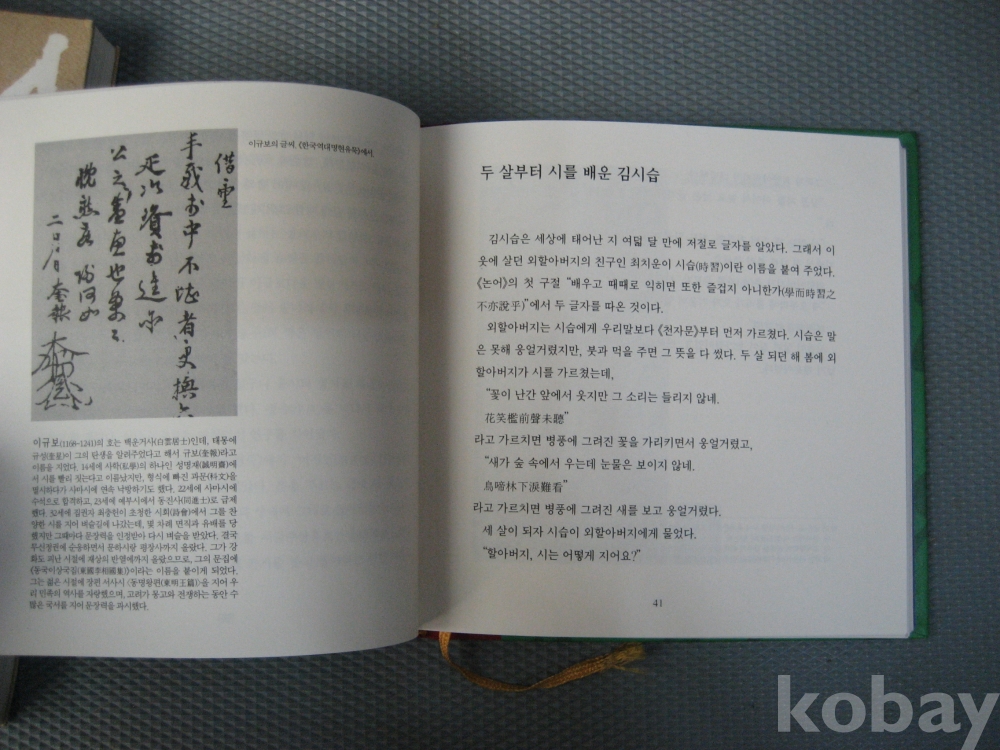 이규보의 글씨. 《한국역대명현유묵》에서.
借雲
이규보(1168~1241)의 호는 백운거사(白雲居士)인데, 태몽에
규성(奎星)이 그의 탄생을 알려주었다고 해서 규보(奎報)라고
이름을 지었다. 14세에 사학(私學)의 하나인 성명재(誠明齋)에
서 시를 빨리 짓는다고 이름났지만, 형식에 빠진 과문(科文)을
멸시하다가 사마시에 연속 낙방하기도 했다. 22세에 사마시에
수석으로 합격하고, 23세에 예부시에서 동진사(同進士)로 급제
했다. 32세에 집권자 최충헌이 초청한 시회(詩會)에서 그를 찬
양한 시를 지어 벼슬길에 나갔는데, 몇 차례 면직과 유배를 당
했지만 그때마다 문장력을 인정받아 다시 벼슬을 받았다. 결국
무신정권에 순응하면서 문하시랑 평장사까지 올랐다. 그가 강
화도 피난 시절에 재상의 반열에까지 올랐으므로, 그의 문집에
《동국이상국집(東國李相國集)》이라는 이름을 붙이게 되었다.
그는 젊은 시절에 장편 서사시 〈동명왕편(東明王篇)〉을 지어 우
리 민족의 역사를 자랑했으며, 고려가 몽고와 전쟁하는 동안 수
많은 국서를 지어 문장력을 과시했다.
두 살부터 시를 배운 김시습
김시습은 세상에 태어난 지 여덟 달 만에 저절로 글자를 알았다. 그래서 이
웃에 살던 외할아버지의 친구인 최치운이 시습(時習)이란 이름을 붙여 주었다.
《논어》의 첫 구절 “배우고 때때로 익히면 또한 즐겁지 아니한가(學而時習之
不亦說乎)”에서 두 글자를 따온 것이다.
외할아버지는 시습에게 우리말보다 《천자문》부터 먼저 가르쳤다. 시습은 말
은 못해 웅얼거렸지만, 붓과 먹을 주면 그 뜻을 다 썼다. 두 살 되던 해 봄에 외
할아버지가 시를 가르쳤는데,
“꽃이 난간 앞에서 웃지만 그 소리는 들리지 않네.
花笑檻前聲未聽”
라고 가르치면 병풍에 그려진 꽃을 가리키면서 웅얼거렸고,
“새가 숲 속에서 우는데 눈물은 보이지 않네.
鳥啼林下淚難看”
라고 가르치면 병풍에 그려진 새를 보고 웅얼거렸다.
세 살이 되자 시습이 외할아버지에게 물었다.
“할아버지, 시는 어떻게 지어요?”
41
kobay